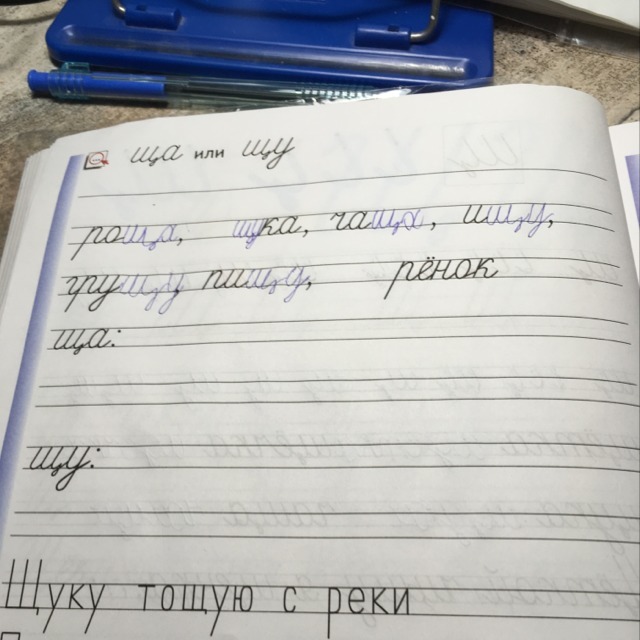 ща или щу
роща, щука, чаща, ищу,
грущу пища, рёнок
ща:
щу:
Щуку тощую с реки